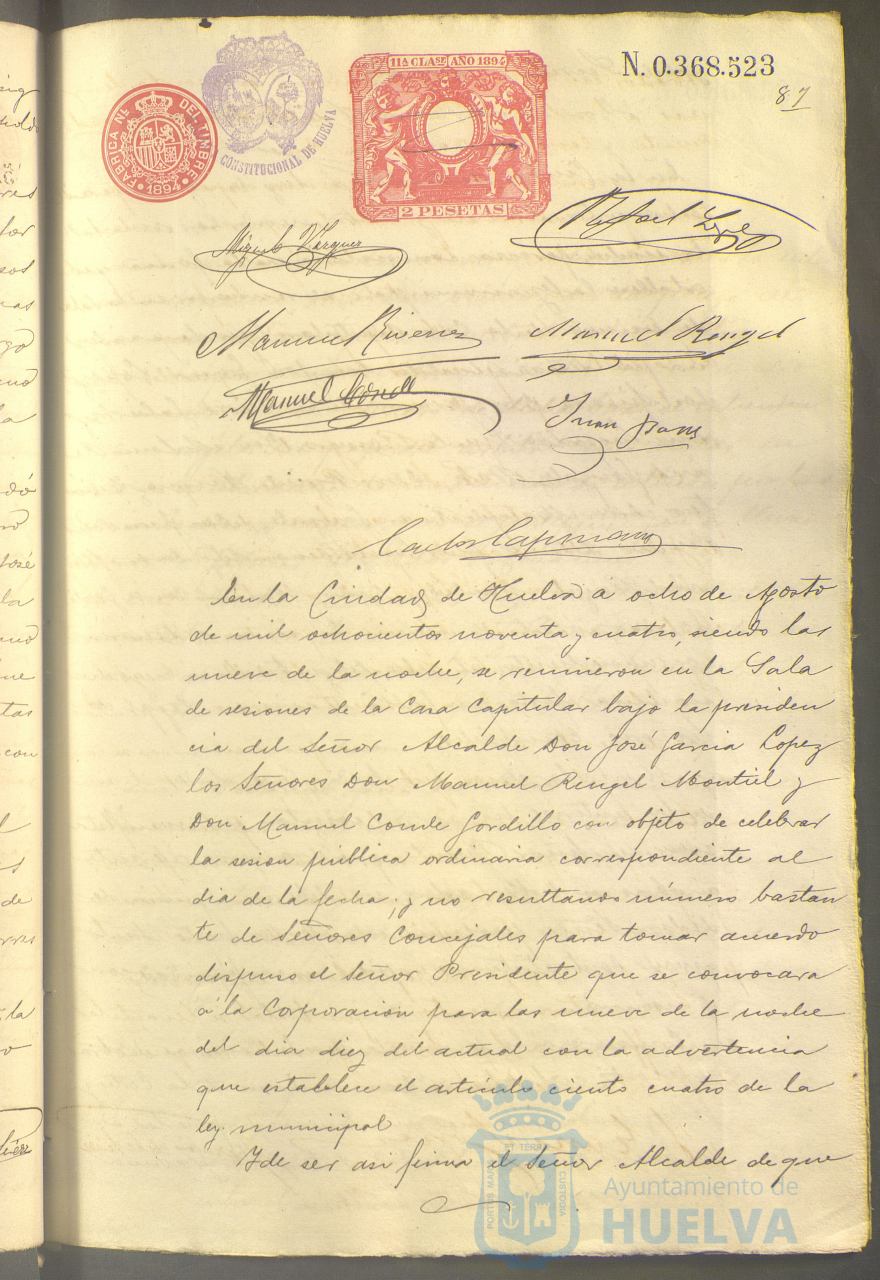 FABRICA NL. DEL TIMBRE
1894
CONSTITUCIONAL DE HUELVA
11A CLASE AÑO 1894
2 PESETAS
N. 0.368.523
87
Miguel Vazquez
Rafael Lopez
Manuel Rengel
Manuel Conde
Juan
En la Ciudad de Huelva á ocho de Agosto
de mil ochocientos noventa y cuatro, siendo las
nueve de la noche, se reunieron en la Sala
de sesiones de la Casa Capitular bajo la presiden
cia del Señor Alcalde Don José Garcia Lopez
los Señores Don Manuel Rengel Montiel y
Don Manuel Conde Gordillo con objeto de celebrar
la sesion pública ordinaria correspondiente al
dia de la fecha; y no resultando número bastan
te de Señores Concejales para tomar acuerdo
dispuso el Señor Presidente que se convocara
á la Corporacion para las nueve de la noche
del dia diez del actual con la advertencia
que establece el artículo ciento cuatro de la
ley municipal
Y de ser asi firma el Señor Alcalde de que
PORTUS MARIS ET TERRÆ CUSTODIA
Ayuntamiento de
HUELVA